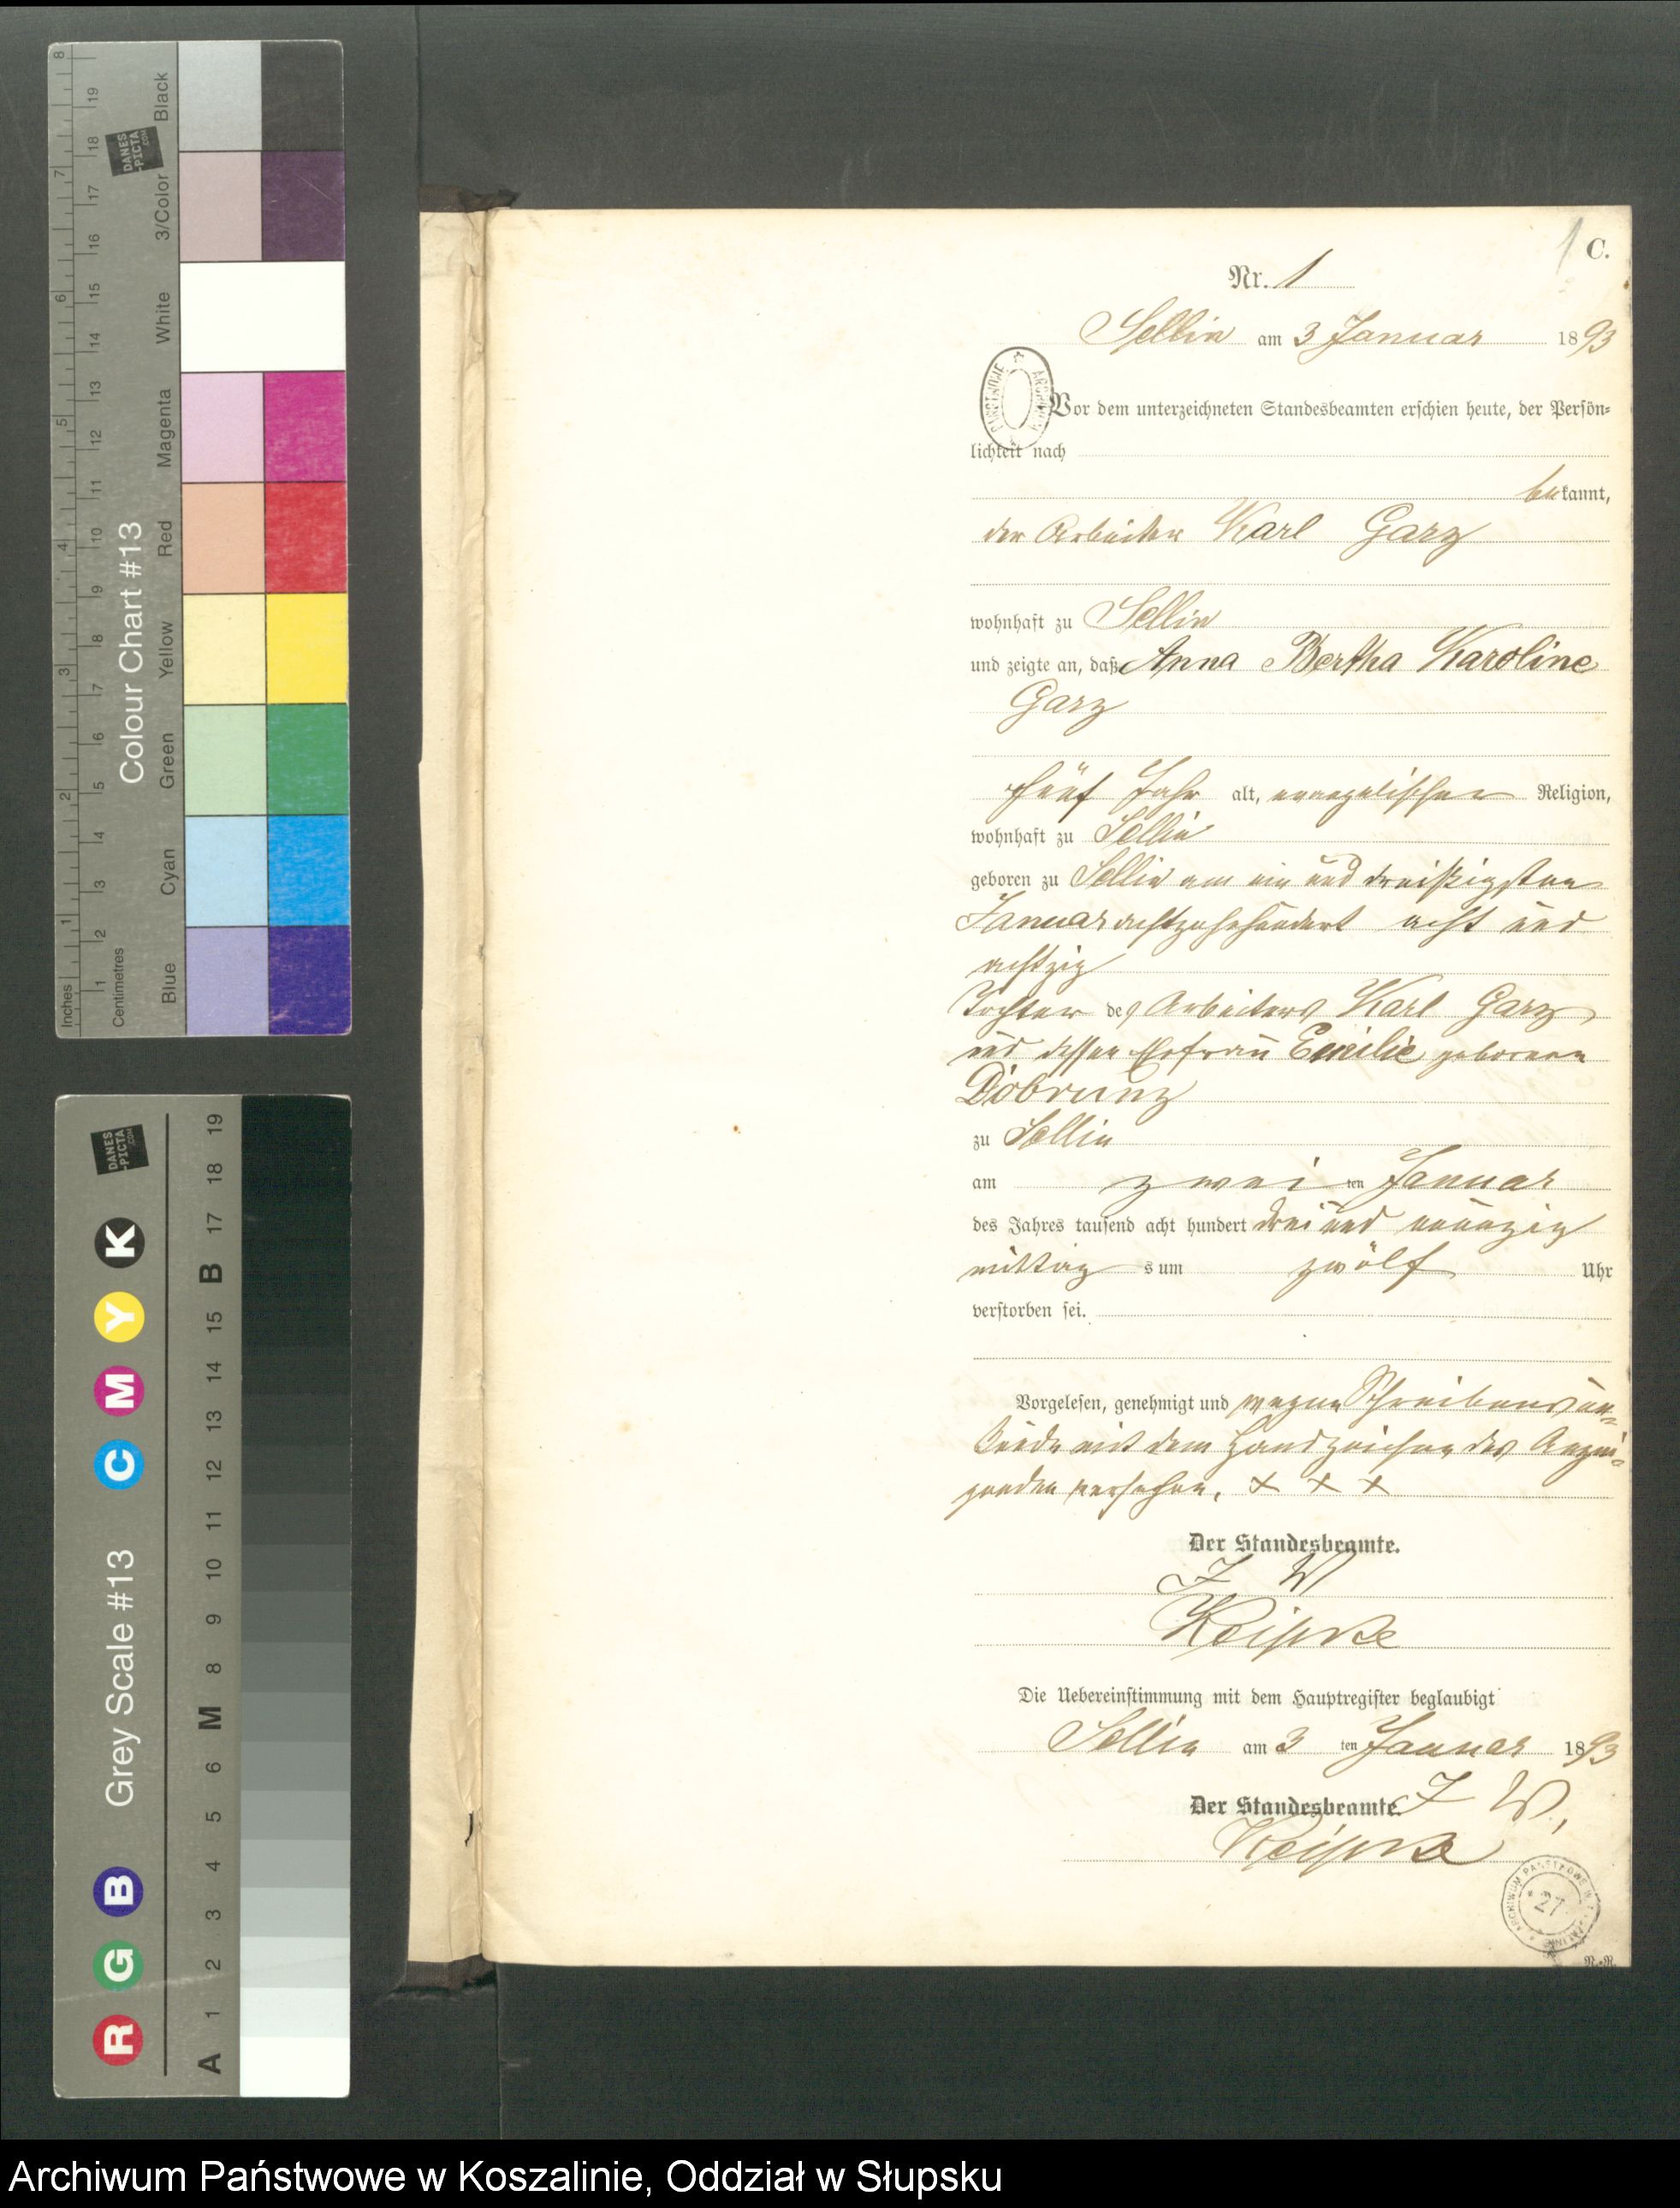 C.
Nr. 1
Sellin am 3 Januar 1893
Vor dem unterzeichneten Standesbeamten erschien heute, der Persön-
lichkeit nach
bekannt,
der Arbeiter Karl Garz
wohnhaft zu Sellin
und zeigte an, daß Anna Bertha Karoline
Garz
fünf Jahr alt, evangelischer Religion,
wohnhaft zu Sellin
geboren zu Sellin am ein und dreißigsten
Januar achtzehnhundert acht und
achtzig
Tochter des Arbeiters Karl Garz
und dessen Ehefrau Emilie geborene
Dobrunz
zu Sellin
am zweiten Januar
des Jahres tausend acht hundert drei und neunzig
mittags um zwölf Uhr
verstorben sei.
Vorgelesen, genehmigt und wegen Schreibensun-
kunde mit dem Handzeichen des Anzei-
genden versehen. + + +
Der Standesbeamte.
J W
Die Uebereinstimmung mit dem Hauptregister beglaubigt
Sellin am 3 ten Januar 1893
Der Standesbeamte. J W,
27
Colour Chart #13
Blue Cyan Green Yellow Red Magenta White 3/Color Black
Inches 1 2 3 4 5 6 7 8
Centimetres 1 2 3 4 5 6 7 8 9 10 11 12 13 14 15 16 17 18 19
DANES
-PICTA
.COM
Grey Scale #13
R G B C M Y K
A 1 2 3 4 5 6 M 8 9 10 11 12 13 14 15 B 17 18 19
DANES
-PICTA
.COM
Archiwum Państwowe w Koszalinie, Oddział w Słupsku